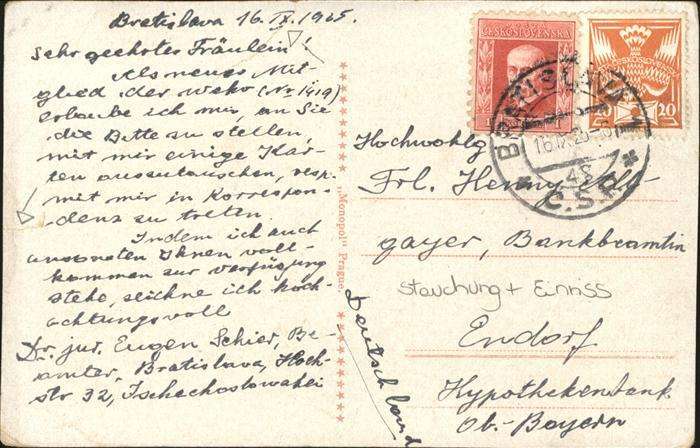 Bratislava 16. IX. 1925.
Sehr geehrtes Fräulein!
Als neues Mit-
glied der Weko (Nr 1419)
erlaube ich mir, an Sie
die Bitte zu stellen,
mit mir einige Kar-
ten auszutauschen, resp.
mit mir in Korrespon-
denz zu treten.
Indem ich auch
ansonsten Ihnen voll-
kommen zur Verfügung
stehe, zeichne ich hoch-
achtungsvoll
Dr. jur. Eugen Schier, Be-
amter, Bratislava, Hoch-
str 32, Tschechoslowakei
"Monopol" Prague.
ČESKOSLOVENSKÁ
20 20
BRATISLAVA 1
16.IX.25
4S
Č.S.R.
Hochwohlg
Frl. Henny
gayer, Bankbeamtin
Stauchung + Einriss
Endorf
Hypothekenbank
Ob.-Bayern
Deutschland